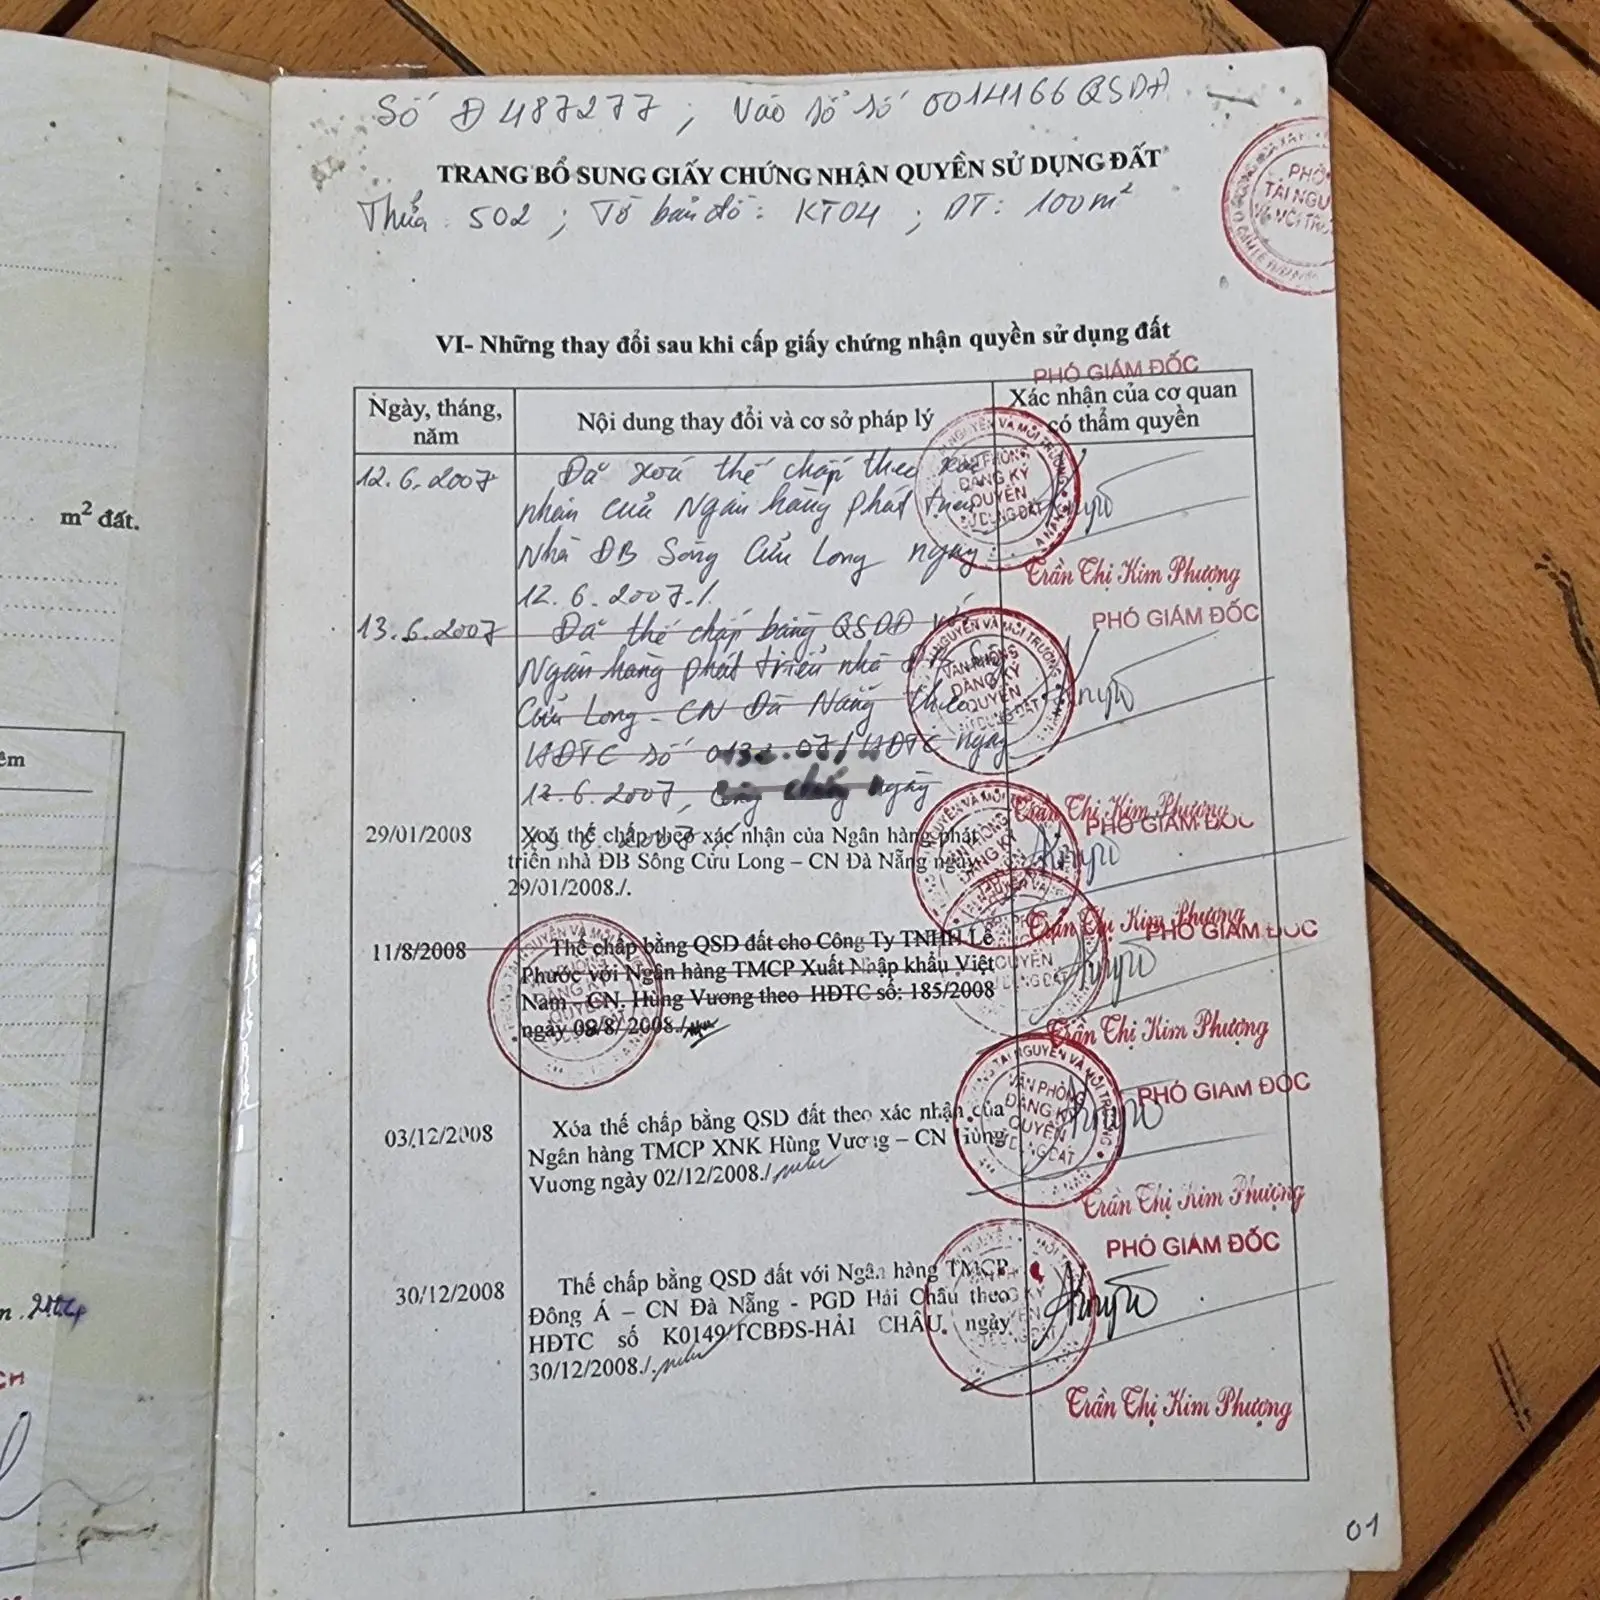 Số Đ 487277 ; Vào sổ số 0014166 QSDĐ
TRANG BỔ SUNG GIẤY CHỨNG NHẬN QUYỀN SỬ DỤNG ĐẤT
Thửa : 502 ; Tờ bản đồ : KT04 ; DT : 100m²
PHÒNG
TÀI NGU
VÀ MÔI TRƯ
VI- Những thay đổi sau khi cấp giấy chứng nhận quyền sử dụng đất
PHÓ GIÁM ĐỐC
Ngày, tháng, năm
Nội dung thay đổi và cơ sở pháp lý
Xác nhận của cơ quan có thẩm quyền
12.6.2007
Đã xoá thế chấp theo xác
nhận của Ngân hàng phát triển
Nhà ĐB Sông Cửu Long ngày
12.6.2007./.
VĂN PHÒNG
ĐĂNG KÝ
QUYỀN
SỬ DỤNG ĐẤT
Trần Thị Kim Phượng
PHÓ GIÁM ĐỐC
13.6.2007
Đã thế chấp bằng QSDĐ với
Ngân hàng phát triển nhà ĐB
Cửu Long - CN Đà Nẵng theo
HĐTC số HĐTC ngày
12.6.2007, ngày
VĂN PHÒNG
ĐĂNG KÝ
QUYỀN
SỬ DỤNG ĐẤT
Trần Thị Kim Phượng
PHÓ GIÁM ĐỐC
29/01/2008
Xoá thế chấp theo xác nhận của Ngân hàng phát
triển nhà ĐB Sông Cửu Long – CN Đà Nẵng ngày
29/01/2008./.
Trần Thị Kim Phượng
PHÓ GIÁM ĐỐC
11/8/2008
Thế chấp bằng QSD đất cho Công Ty TNHH Lê
Phước với Ngân hàng TMCP Xuất Nhập khẩu Việt
Nam – CN. Hùng Vương theo HĐTC số: 185/2008
ngày 08/8/ 2008./
ĐĂNG KÝ
QUYỀN
Trần Thị Kim Phượng
PHÓ GIÁM ĐỐC
03/12/2008
Xóa thế chấp bằng QSD đất theo xác nhận của
Ngân hàng TMCP XNK Hùng Vương – CN Hùng
Vuơng ngày 02/12/2008./
VĂN PHÒNG
ĐĂNG KÝ
QUYỀN
SỬ DỤNG ĐẤT
Trần Thị Kim Phượng
PHÓ GIÁM ĐỐC
30/12/2008
Thế chấp bằng QSD đất với Ngân hàng TMCP
Đông Á – CN Đà Nẵng - PGD Hải Châu theo
HĐTC số K0149/TCBĐS-HẢI CHÂU ngày
30/12/2008./.
Trần Thị Kim Phượng
01
m² đất.